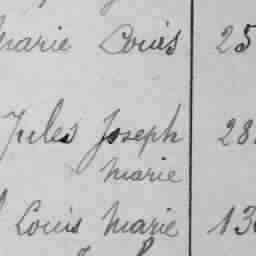 Marie Louis 25
Jules Joseph 28
Marie
Louis Marie 13